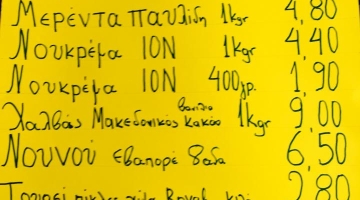 Μερέντα Παυλίδη 1kgr 4,80
Νουκρέμα ΙΟΝ 1kgr 4,40
Νουκρέμα ΙΟΝ 400γρ. 1,90
Χαλβάς Μακεδονικός βανίλια κακάο 1kgr 9,00
Νουνού εβαπορέ 8άδα 6,50
2,80